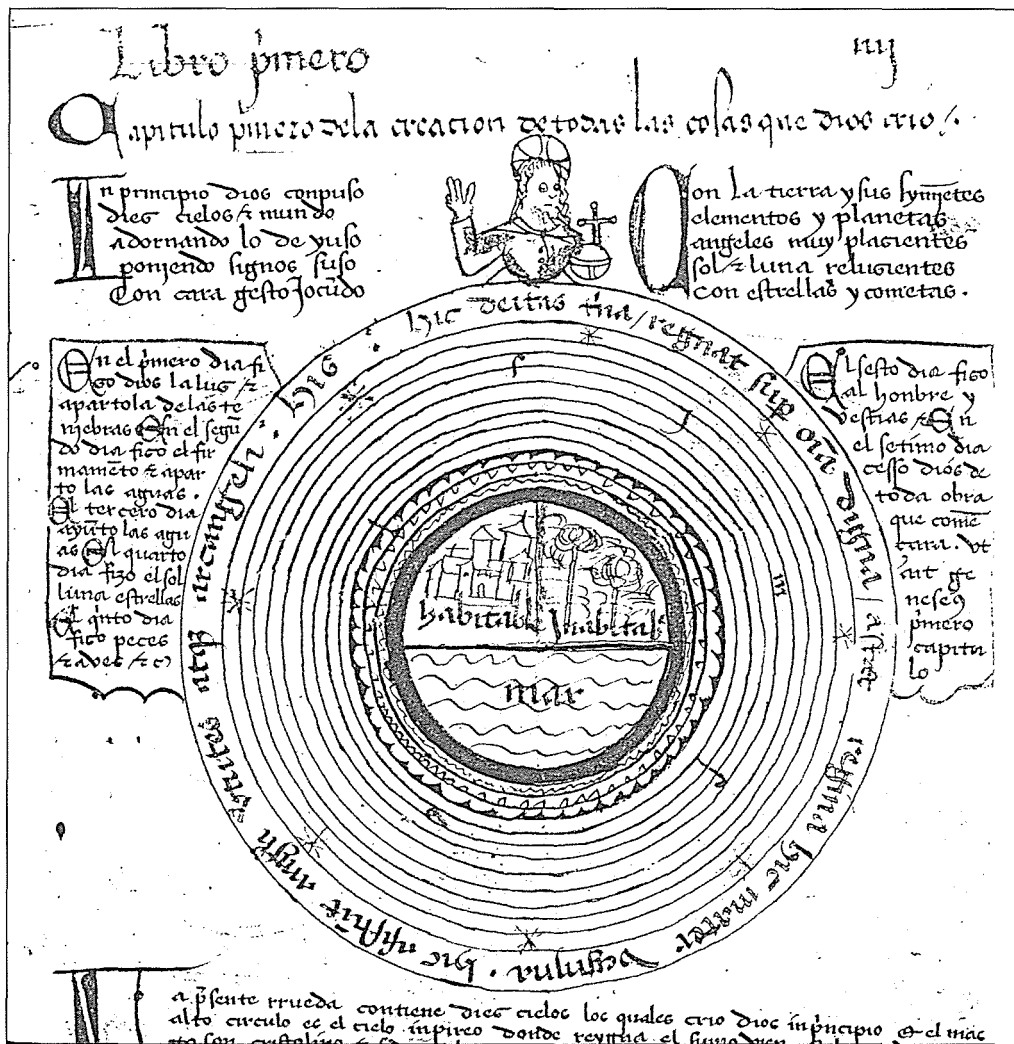 Libro p̄mero
iiij
Capitulo p̄mero dela creacion de todas las cosas que dios crio
In principio dios conpuso
dies cielos & mundo
adornando lo de yuso
poniendo signos suso
Con cara gesto Jocũdo
Con la tierra y sus
elementos y planetas
angeles muy placientes
sol & luna relusientes
con estrellas y cometas.
En el p̄mero dia fi
zo dios la lus &
apartola de las te
niebras En el segũ
do dia fizo el fir
mamẽto & apar
to las aguas.
El tercero dia
ayũto las agu
as El quarto
dia fizo el sol
luna estrellas
El q̃nto dia
fizo peces
& aves & c̃
El sesto dia fizo
al honbre y
bestias & En
el setimo dia
cesso dios de
toda obra
que comẽ
cara. vt
ait ge
nese9
p̄mero
capitu
lo
hic deitas t̃na / regnat sup om̃a digna / astat
regina hic mater benigna. hic
atq̃ arcangeli. his
s
J
m
habitable Inabitable
mar
La p̃sente rrueda contiene dies cielos los quales crio dios in p̃ncipio & el mas
alto circulo es el cielo inpireo donde reyna el sumo